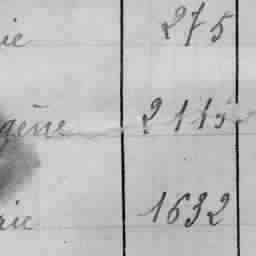 ie 275
gène 2115
rie 1632